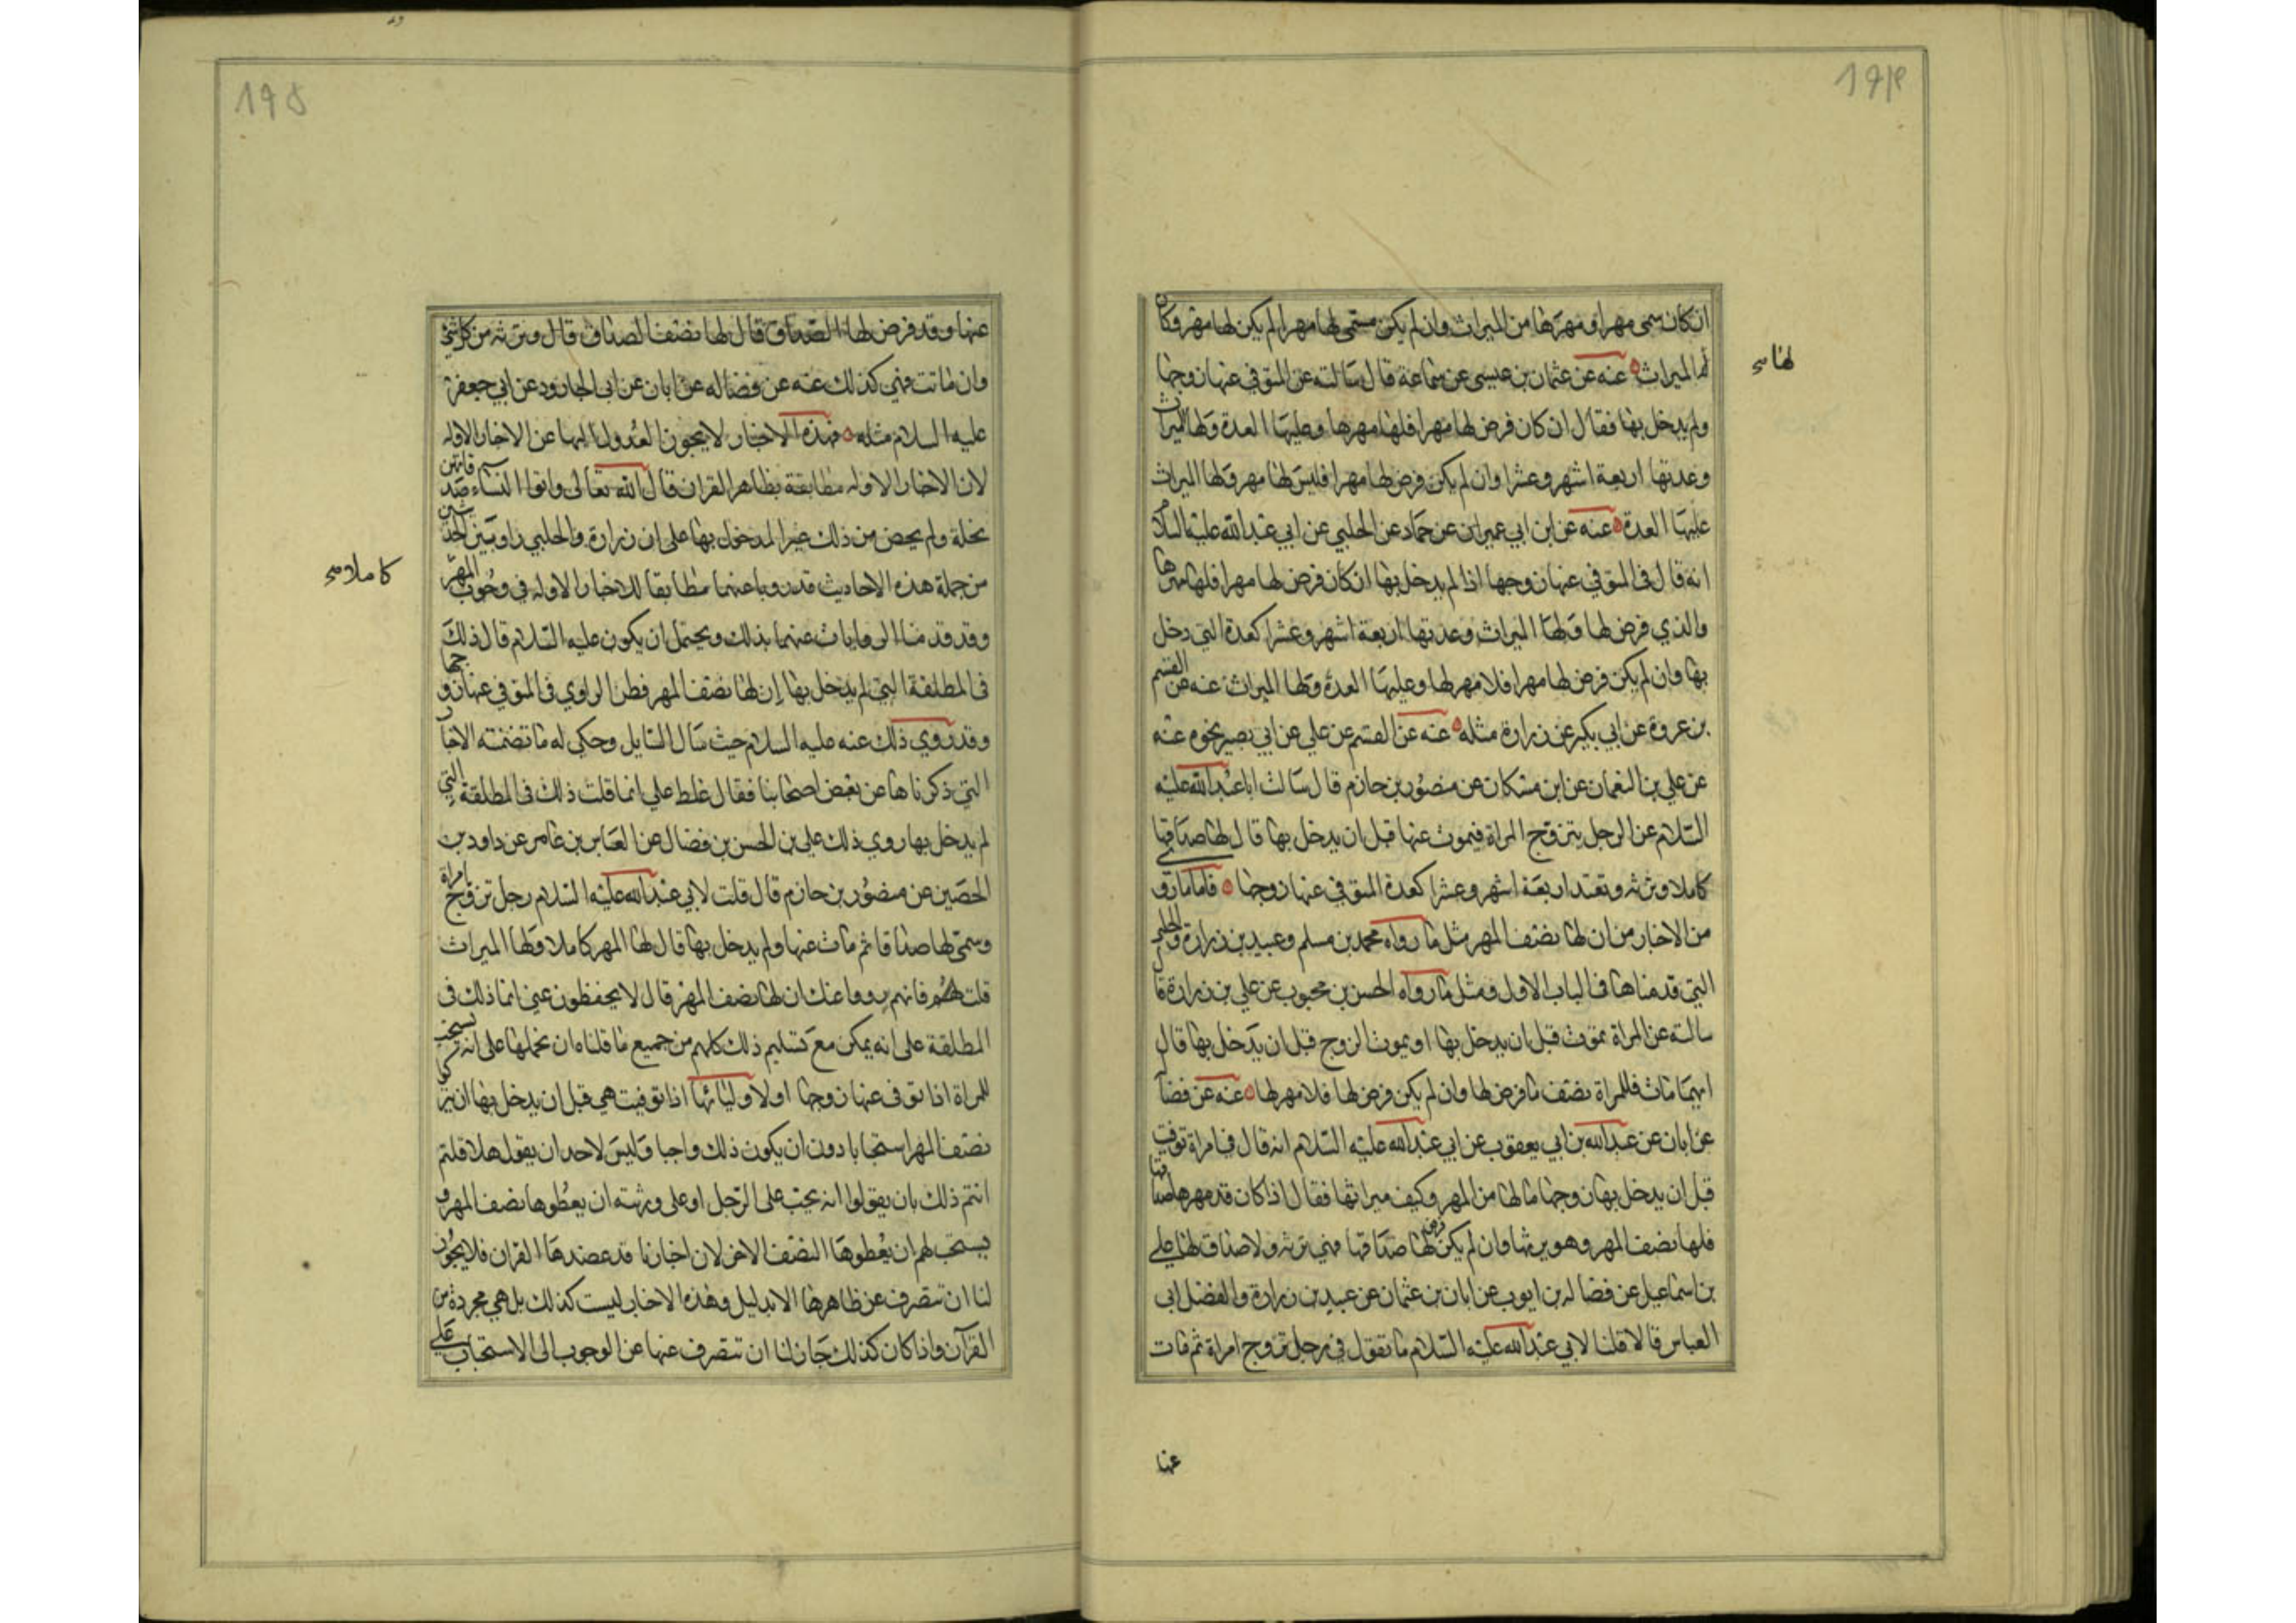 ۱۹۴
ان كان سمى مهرا فمهرها من الميراث وان لم يكن سمى لها مهرا لم يكن لها مهر وكان
لها الميراث عنه عن عثمان بن عيسى عن سماعة قال سالته عن المتوفى عنها زوجها
ولم يدخل بها فقال ان كان فرض لها مهرا فلها مهرها وعليها العدة ولها الميراث
وعدتها اربعة اشهر وعشرا وان لم يكن فرض لها مهرا فليس لها مهر ولها الميراث
عليها العدة عنه عن ابن ابي عمير عن حماد عن الحلبي عن ابي عبد الله عليه السلام
انه قال فى المتوفى عنها زوجها اذا لم يدخل بها ان كان فرض لها مهرا فلها مهرها
والذي فرض لها ولها الميراث وعدتها اربعة اشهر وعشرا كعدة التي دخل
بها وان لم يكن فرض لها مهرا فلا مهر لها وعليها العدة ولها الميراث عنه عن القسم
بن عروة عن ابي بكير عن زرارة مثله عنه عن القسم عن علي عن ابي بصير نحوه عنه
عن علي بن النعمان عن ابن مسكان عن منصور بن حازم قال سالت ابا عبد الله عليه
السلام عن الرجل يتزوج المراة فيموت عنها قبل ان يدخل بها قال لها صداقها
كاملا وترثه وتعتد اربعة اشهر وعشرا كعدة المتوفى عنها زوجها فاما ما روى
من الاخبار من ان لها نصف المهر مثل ما رواه محمد بن مسلم وعبيد بن زرارة والحلبي
التي قدمناها فى الباب الاول ومثل ما رواه الحسن بن محبوب عن علي بن زرارة قال
سالته عن المراة تموت قبل ان يدخل بها او يموت الزوج قبل ان يدخل بها قال
ايهما مات فللمراة نصف ما فرض لها وان لم يكن فرض لها فلا مهر لها عنه عن فضالة
عن ابان عن عبد الله بن ابي يعفور عن ابي عبد الله عليه السلام انه قال في امراة توفيت
قبل ان يدخل بها زوجها ما لها من المهر وكيف ميراثها فقال اذا كان قد مهرها صداقا
فلها نصف المهر وهو يرثها وان لم يكن فرض لها صداقها فهي ترثه ولا صداق لها علي
بن اسماعيل عن فضالة بن ايوب عن ابان بن عثمان عن عبيد بن زرارة والفضل ابى
العباس قالا قلنا لابي عبد الله عليه السلام ما تقول في رجل تزوج امراة ثم مات
لها
عنها
۱۹۵
عنها وقد فرض لها الصداق قال لها نصف الصداق قال وترثه من كل شئ
وان ماتت فهي كذلك عنه عن فضاله عن ابان عن ابى الجارود عن ابي جعفر
عليه السلام مثله فهذه الاخبار لا يجوز العدول اليها عن الاخبار الاوله
لان الاخبار الاوله مطابقة بظاهر القران قال الله تعالى واتوا النساء صدقاتهن
نحلة ولم يخص من ذلك غير المدخول بها على ان زرارة والحلبي راويين لحديثين
من جملة هذه الاحاديث قد رويا عنهما مطابقا للاخبار الاوله في وجوب المهر
وقد قدمنا الروايات عنهما بذلك ويحتمل ان يكون عليه السلام قال ذلك
فى المطلقة التي لم يدخل بها ان لها نصف المهر فظن الراوي فى المتوفى عنها زوجها
وقد روي ذلك عنه عليه السلام حيث سال السايل وحكى له ما تضمنته الاخبار
التي ذكرناها عن بعض اصحابنا فقال غلط علي انما قلت ذلك فى المطلقة التي
لم يدخل بها روي ذلك علي بن الحسن بن فضال عن العباس بن عامر عن داود بن
الحصين عن منصور بن حازم قال قلت لابي عبد الله عليه السلام رجل تزوج امراة
وسمى لها صداقا ثم مات عنها ولم يدخل بها قال لها المهر كاملا ولها الميراث
قلت فانهم رووا عنك ان لها نصف المهر قال لا يحفظون عني انما ذلك فى
المطلقة على انه يمكن مع تسليم ذلك كلهم من جميع ما قلناه ان نحملها على انه يستحب
للمراة اذا توفى عنها زوجها او لاوليائها اذا توفيت هي قبل ان يدخل بها ان يتركوا
نصف المهر استحبابا دون ان يكون ذلك واجبا وليس لاحد ان يقول هلا قلتم
انتم ذلك بان يقولوا انه يجب على الرجل او على ورثته ان يعطوها نصف المهر و
يستحب لهم ان يعطوها النصف الاخر لان اخبارنا قد عضدها القران فلا يجوز
لنا ان تنصرف عن ظاهرها الا بدليل وهذه الاخبار ليست كذلك بل هي مجردة من
القرآن واذا كان كذلك جاز لنا ان تنصرف عنها عن الوجوب الى الاستحباب على
كاملا